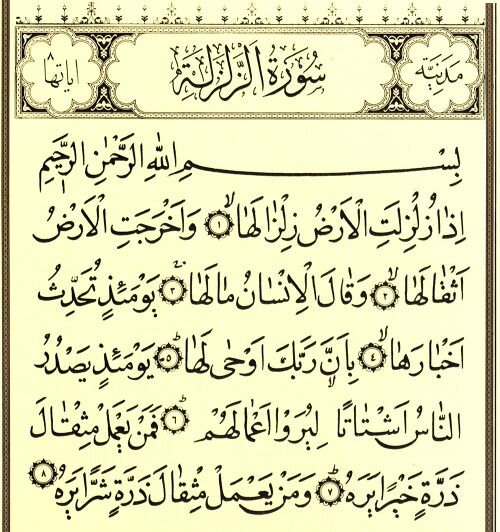 مدنية سورة الزلزلة اياتها ٨
بِسْمِ اللهِ الرَّحْمٰنِ الرَّحِيمِ
اِذَا زُلْزِلَتِ الْاَرْضُ زِلْزَالَهَا ﴿١﴾ وَاَخْرَجَتِ الْاَرْضُ
اَثْقَالَهَا ﴿٢﴾ وَقَالَ الْاِنْسَانُ مَالَهَا ﴿٣﴾ يَوْمَئِذٍ تُحَدِّثُ
اَخْبَارَهَا ﴿٤﴾ بِاَنَّ رَبَّكَ اَوْحٰى لَهَا ﴿٥﴾ يَوْمَئِذٍ يَصْدُرُ
النَّاسُ اَشْتَاتًا لِيُرَوْا اَعْمَالَهُمْ ﴿٦﴾ فَمَنْ يَعْمَلْ مِثْقَالَ
ذَرَّةٍ خَيْرًا يَرَهُ ﴿٧﴾ وَمَنْ يَعْمَلْ مِثْقَالَ ذَرَّةٍ شَرًّا يَرَهُ ﴿٨﴾